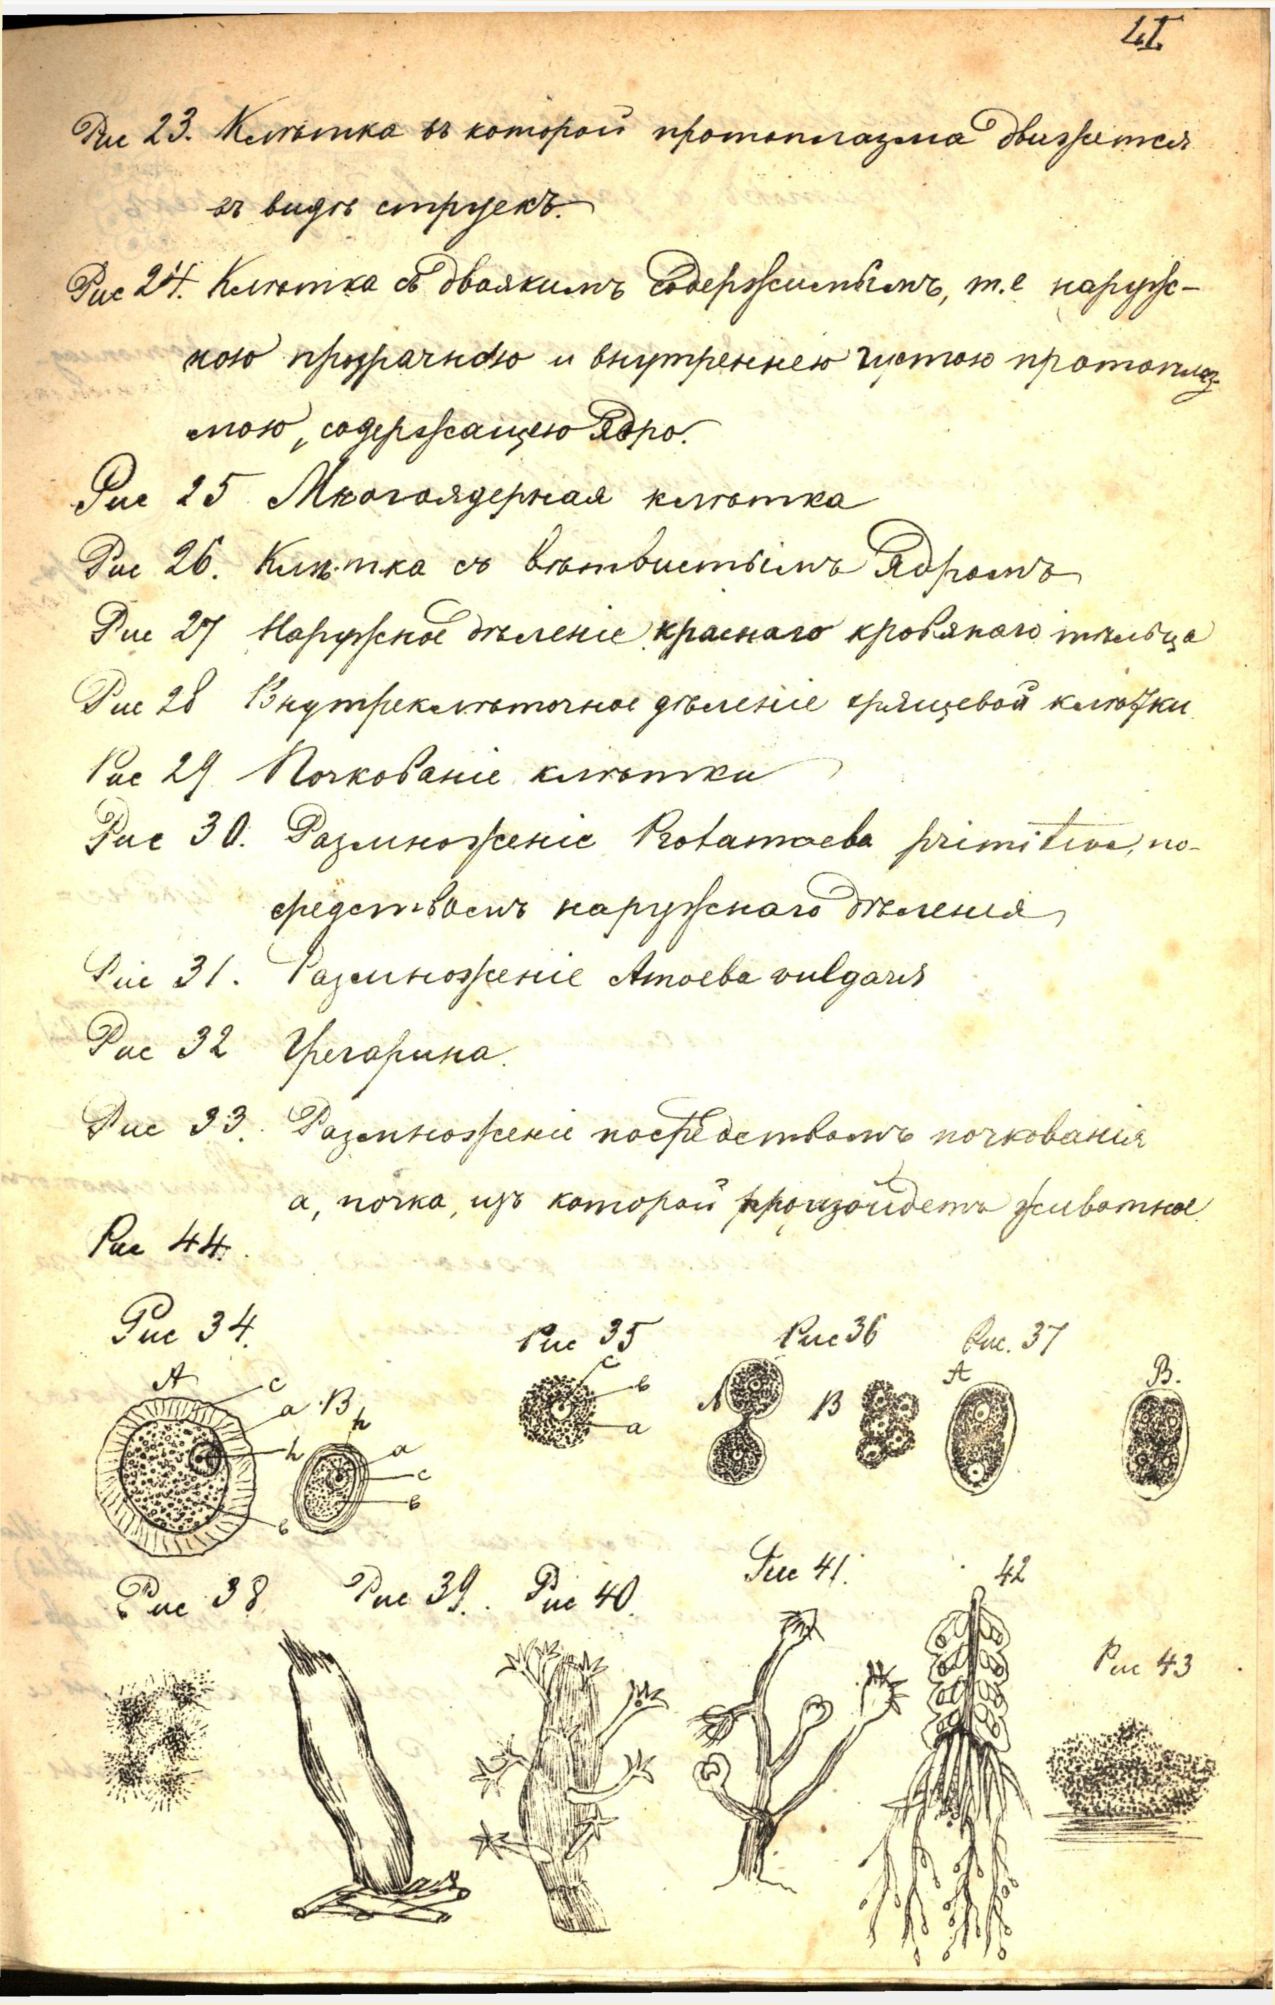 LI
Рис 23. Клѣтка въ которой протоплазма движется
въ видѣ струекъ.
Рис 24. Клѣтка съ двоякимъ содержимымъ, т.е наруж-
ною прозрачною и внутреннею густою протоплаз
мою, содержащею Ядро.
Рис 25 Многоядерная клѣтка
Рис 26. Клѣтка съ вѣтвистымъ Ядромъ
Рис 27 Наружное дѣленіе краснаго кровянаго тѣльца
Рис 28 Внутреклѣточное дѣленіе хрящевой клѣтки
Рис 29 Почкованіе клѣтки
Рис 30. Размноженіе Protamoeba primitiva, по-
средствомъ наружнаго дѣленія
Рис 31. Размноженіе Amoeba vulgaris
Рис 32 Грегарина.
Рис 33. Размноженіе посредствомъ почкованія
а, почка, изъ которой произойдетъ животное.
Рис 44.
Рис 34. Рис 35 Рис 36 Рис. 37
A c a h b
B h a c b
c b a
A B
A B.
Рис 38 Рис 39. Рис 40. Рис 41. 42
Рис 43